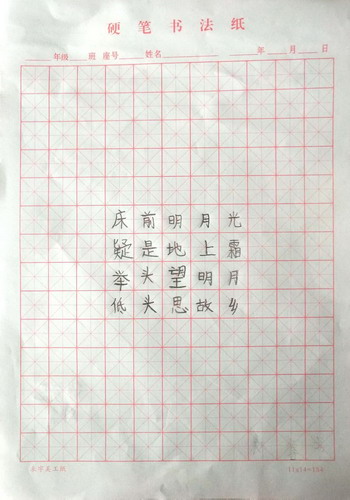 硬笔书法纸
年级 班 座号 姓名 年 月 日
床前明月光
疑是地上霜
举头望明月
低头思故乡
11x14=154